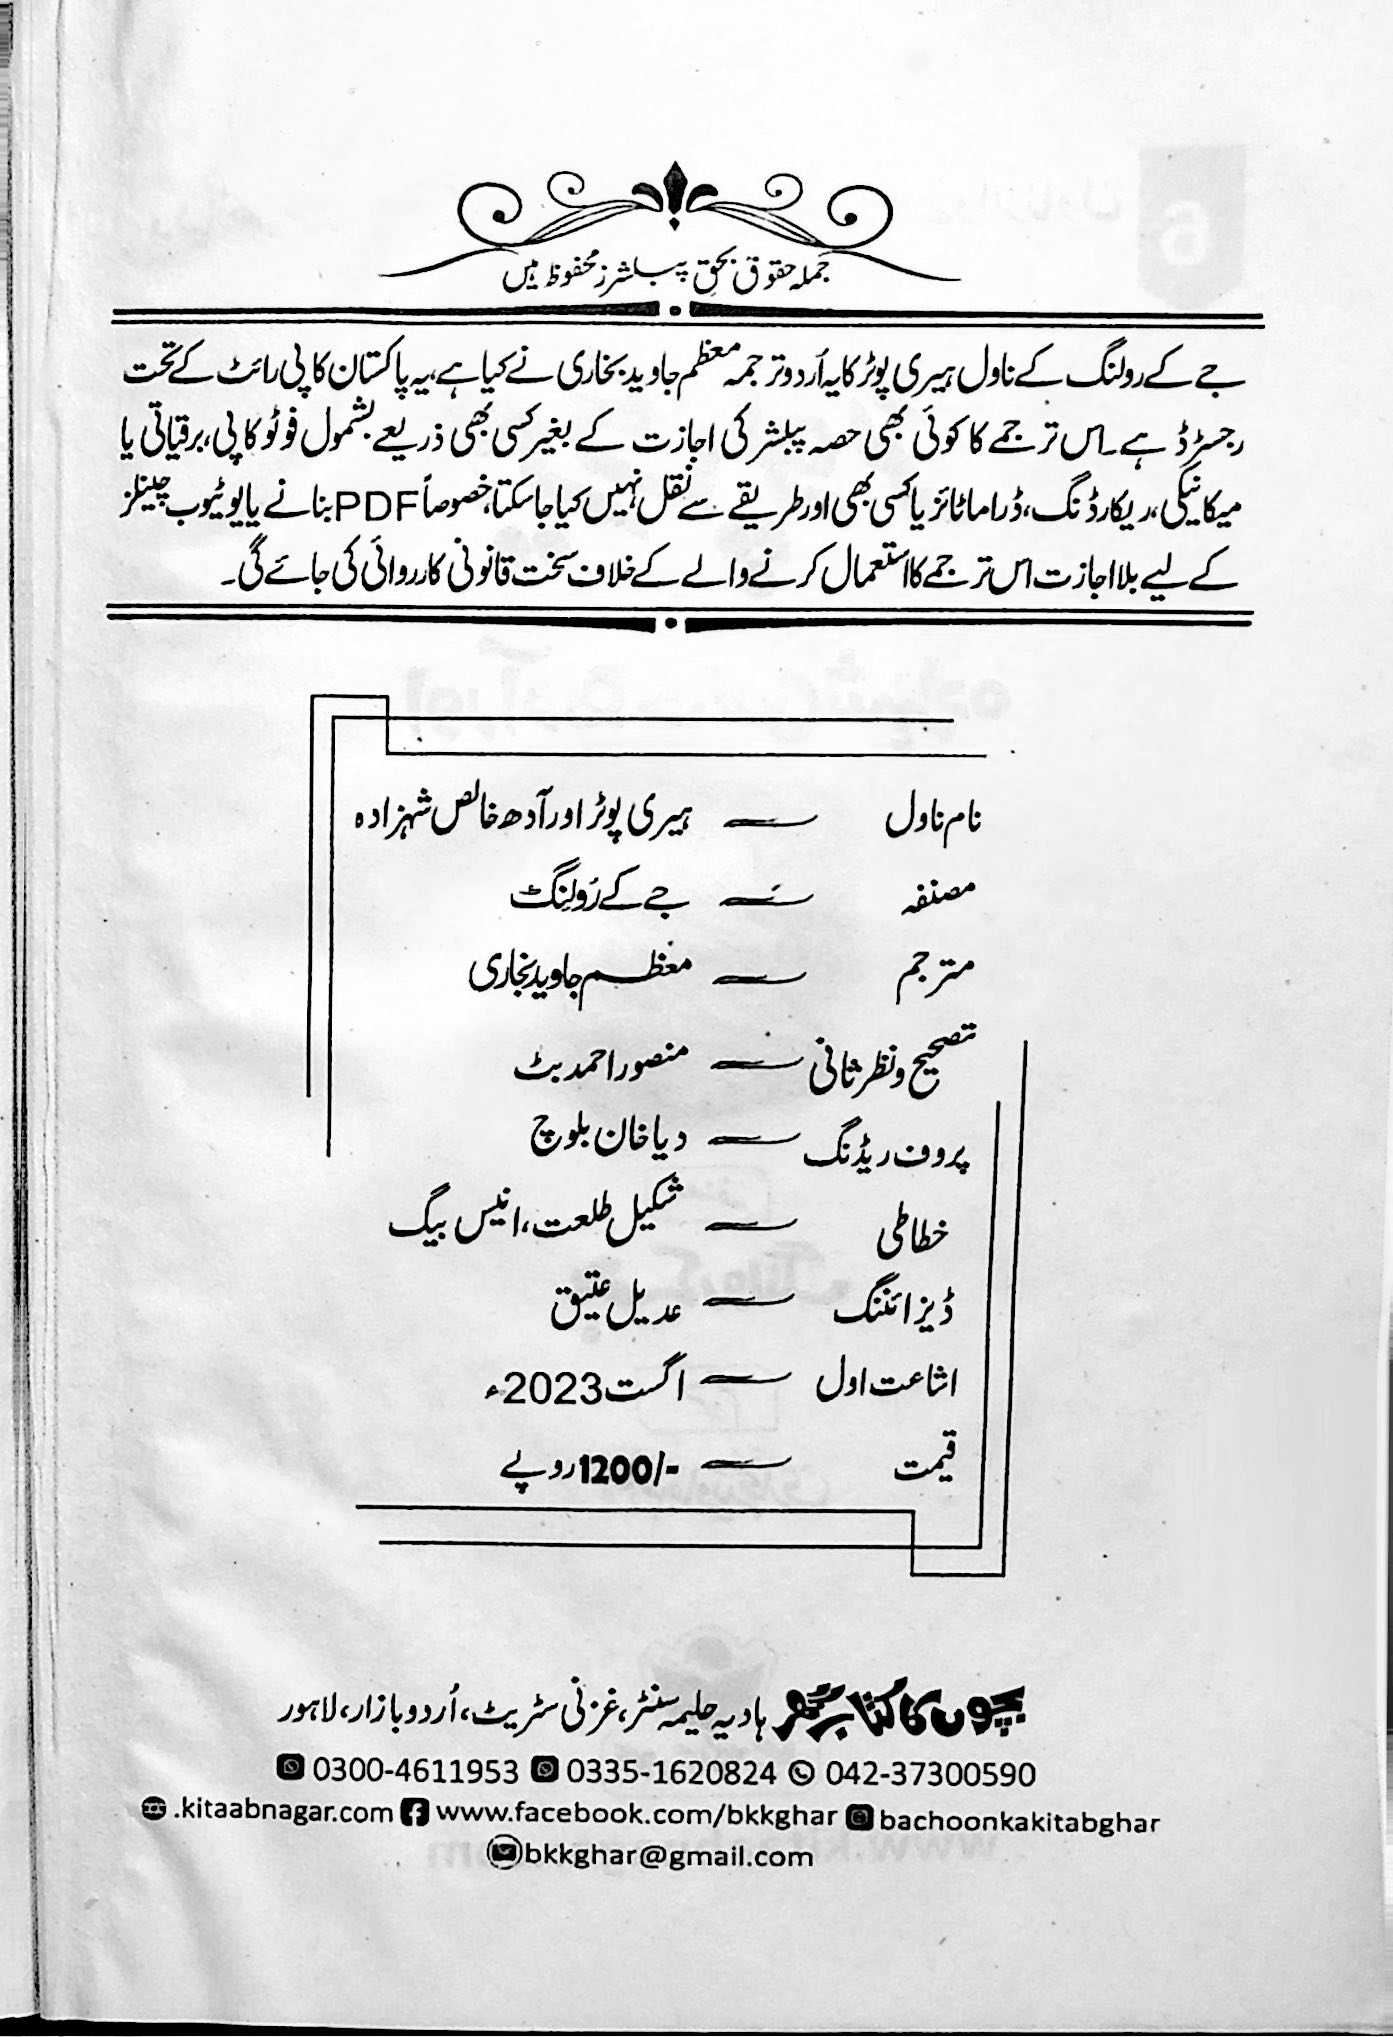 جملہ حقوق بحق پبلشرز محفوظ ہیں
جے کے رولنگ کے ناول ہیری پوٹر کا یہ اُردو ترجمہ معظم جاوید بخاری نے کیا ہے، یہ پاکستان کاپی رائٹ کے تحت
رجسٹرڈ ہے۔ اس ترجمے کا کوئی بھی حصہ پبلشر کی اجازت کے بغیر کسی بھی ذریعے بشمول فوٹو کاپی، برقیاتی یا
میکانیکی، ریکارڈنگ، ڈراماٹائز یا کسی بھی اور طریقے سے نقل نہیں کیا جا سکتا، خصوصاً PDF بنانے یا یوٹیوب چینلز
کے لیے بلا اجازت اس ترجمے کا استعمال کرنے والے کے خلاف سخت قانونی کارروائی کی جائے گی۔
نام ناول — ہیری پوٹر اور آدھ خالص شہزادہ
مصنفہ — جے کے رَولنگ
مترجم — معظم جاوید بخاری
تصحیح و نظر ثانی — منصور احمد بٹ
پروف ریڈنگ — دیا خان بلوچ
خطاطی — شکیل طلعت، انیس بیگ
ڈیزائننگ — عدیل عتیق
اشاعت اول — اگست 2023ء
قیمت — 1200/- روپے
بچوں کا کتاب گھر ہادیہ حلیمہ سنٹر، غزنی سٹریٹ، اُردو بازار، لاہور
0300-4611953 0335-1620824 042-37300590
.kitaabnagar.com www.facebook.com/bkkghar bachoonkakitabghar
bkkghar@gmail.com